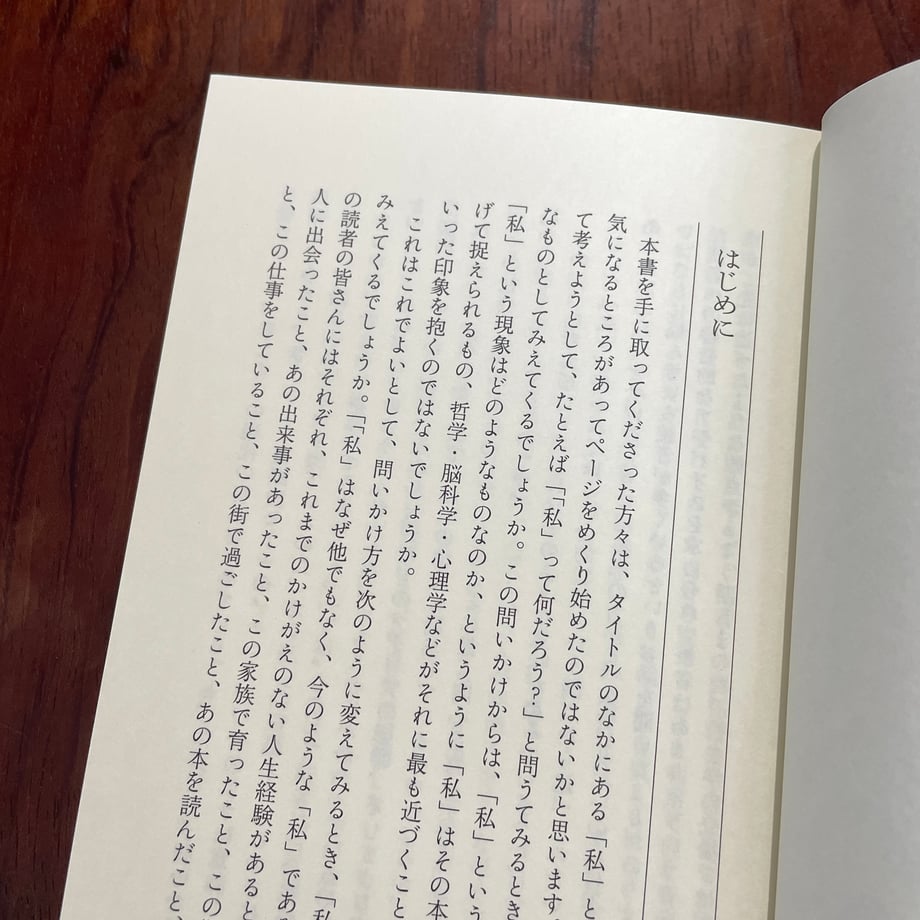 はじめに
本書を手に取ってくださった方々は、タイトルのなかにある「私」と
気になるところがあってページをめくり始めたのではないかと思います。
て考えようとして、たとえば「「私」って何だろう？」と問うてみるとき
なものとしてみえてくるでしょうか。この問いかけからは、「私」という
「私」という現象はどのようなものなのか、というように「私」はその本
げて捉えられるもの、哲学・脳科学・心理学などがそれに最も近づくこと
いった印象を抱くのではないでしょうか。
これはこれでよいとして、問いかけ方を次のように変えてみるとき、「私
みえてくるでしょうか。「「私」はなぜ他でもなく、今のような「私」である
の読者の皆さんにはそれぞれ、これまでのかけがえのない人生経験があると
人に出会ったこと、あの出来事があったこと、この家族で育ったこと、この
と、この仕事をしていること、この街で過ごしたこと、あの本を読んだこと、